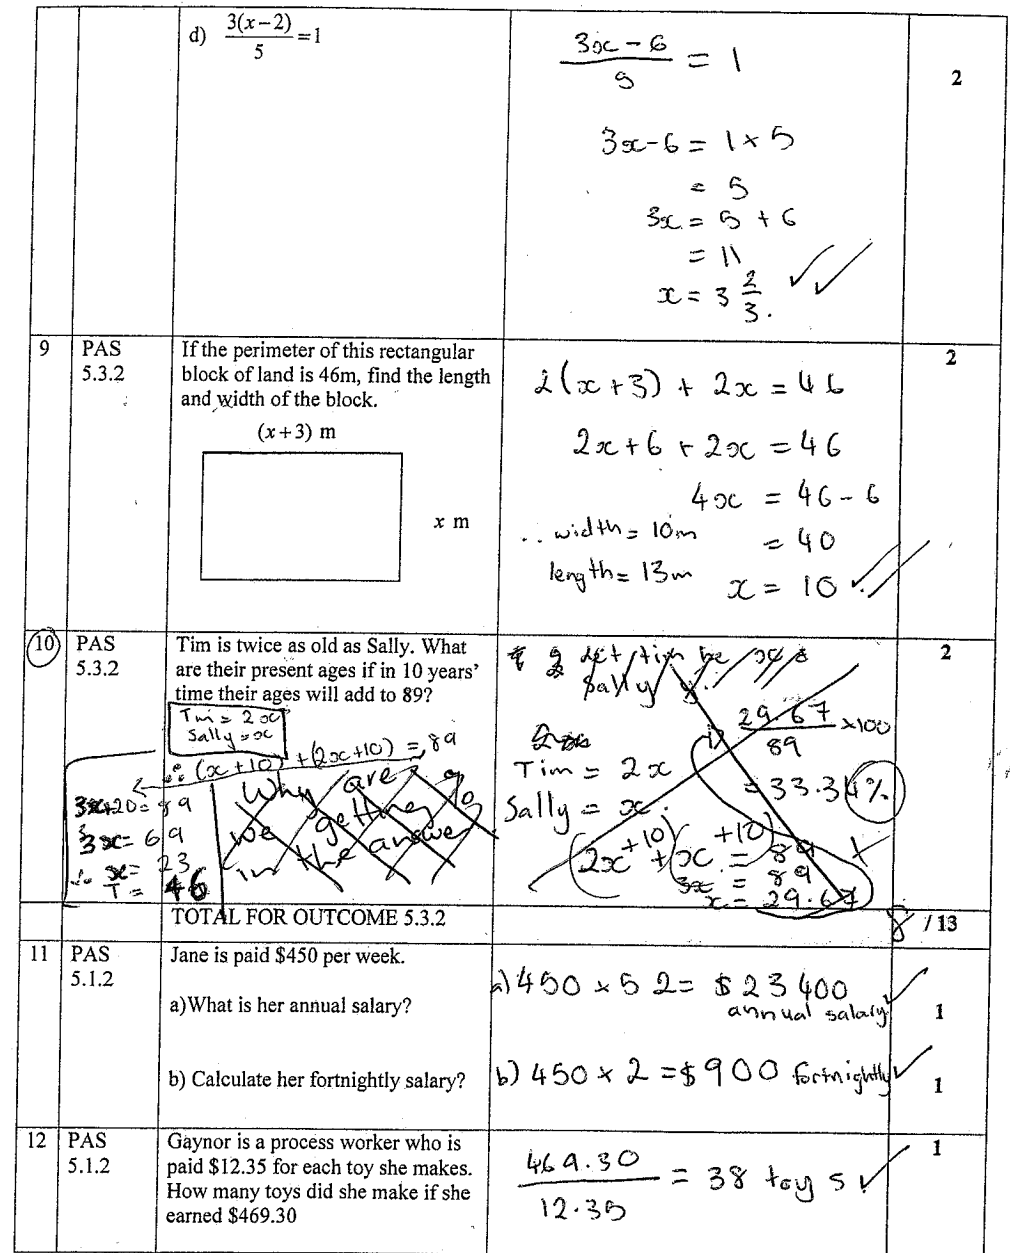 d) 3(x−2)/5 = 1
3x − 6 / 5 = 1
2
3x − 6 = 1 × 5
= 5
3x = 5 + 6
= 11
x = 3 2/3.
9 PAS 5.3.2
If the perimeter of this rectangular
block of land is 46m, find the length
and width of the block.
(x+3) m
x m
2(x+3) + 2x = 46
2x + 6 + 2x = 46
4x = 46 − 6
= 40
x = 10
∴ width = 10m
length = 13m
2
10 PAS 5.3.2
Tim is twice as old as Sally. What
are their present ages if in 10 years'
time their ages will add to 89?
Tim = 2x
Sally = x
∴ (x+10) + (2x+10) = 89
3x+20 = 89
3x = 69
x = 23
∴ T = 46
Why are
we getting
in the answer
let tim be x
Sally y
Tim = 2x
Sally = x.
(2x+10) + (x+10) = 89
3x = 89
x = 29.67
29.67/89 × 100
= 33.34%
2
TOTAL FOR OUTCOME 5.3.2
8 / 13
11 PAS 5.1.2
Jane is paid $450 per week.
a)What is her annual salary?
a) 450 × 52 = $23400
annual salary
1
b) Calculate her fortnightly salary?
b) 450 × 2 = $900 fortnightly
1
12 PAS 5.1.2
Gaynor is a process worker who is
paid $12.35 for each toy she makes.
How many toys did she make if she
earned $469.30
469.30/12.35 = 38 toys
1